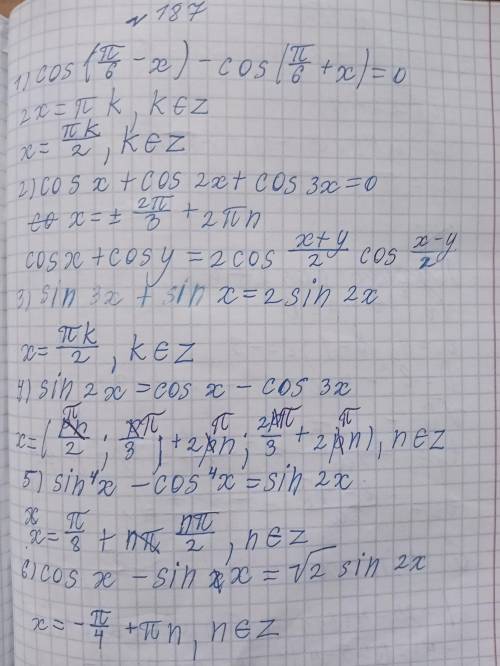 № 187
1) cos(π/6 - x) - cos(π/6 + x) = 0
2x = πk, k∈Z
x = πk/2, k∈Z
2) cos x + cos 2x + cos 3x = 0
x = ± 2π/3 + 2πn
cosx + cosy = 2cos x+y/2 cos x-y/2
3) sin 3x + sin x = 2 sin 2x
x = πk/2, k∈Z
4) sin 2x = cos x - cos 3x
x = (πn/2; π/3; + 2πn; 2π/3 + 2πn), n∈Z
5) sin⁴x - cos⁴x = sin 2x
x = π/8 + nπ/2, n∈Z
6) cos x - sin x = √2 sin 2x
x = -π/4 + πn, n∈Z